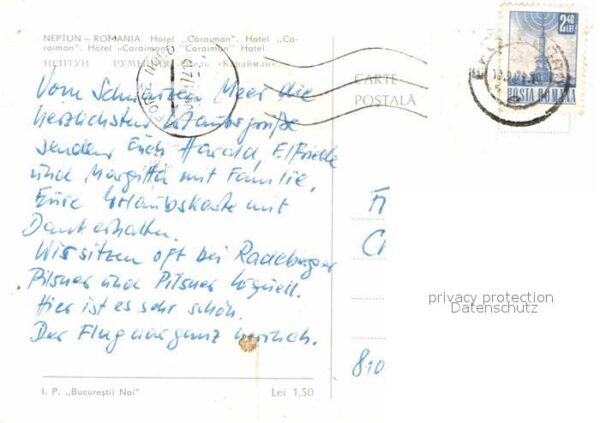 NEPTUN – ROMANIA. Hotel „Caraiman". Hotel „Ca-
raiman". Hôtel «Caraiman» "Caraiman" Hotel.
НЕПТУН РУМЫНИЯ «Карайман».
CARTE
POSTALĂ
2,40
LEI
POSTA ROMANA
Vom Schwarzen Meer die
herzlichsten Urlaubsgrüße
senden Euch Harald, Elfriede
und Margitta mit Familie,
Eure Urlaubskarte mit
Dank erhalten.
Wir sitzen oft bei Radeberger
Pilsner und Pilsner Urquell.
Hier ist es sehr schön.
Der Flug war ganz herrlich.
810
privacy protection
Datenschutz
I. P. „Bucureștii Noi" Lei 1,50